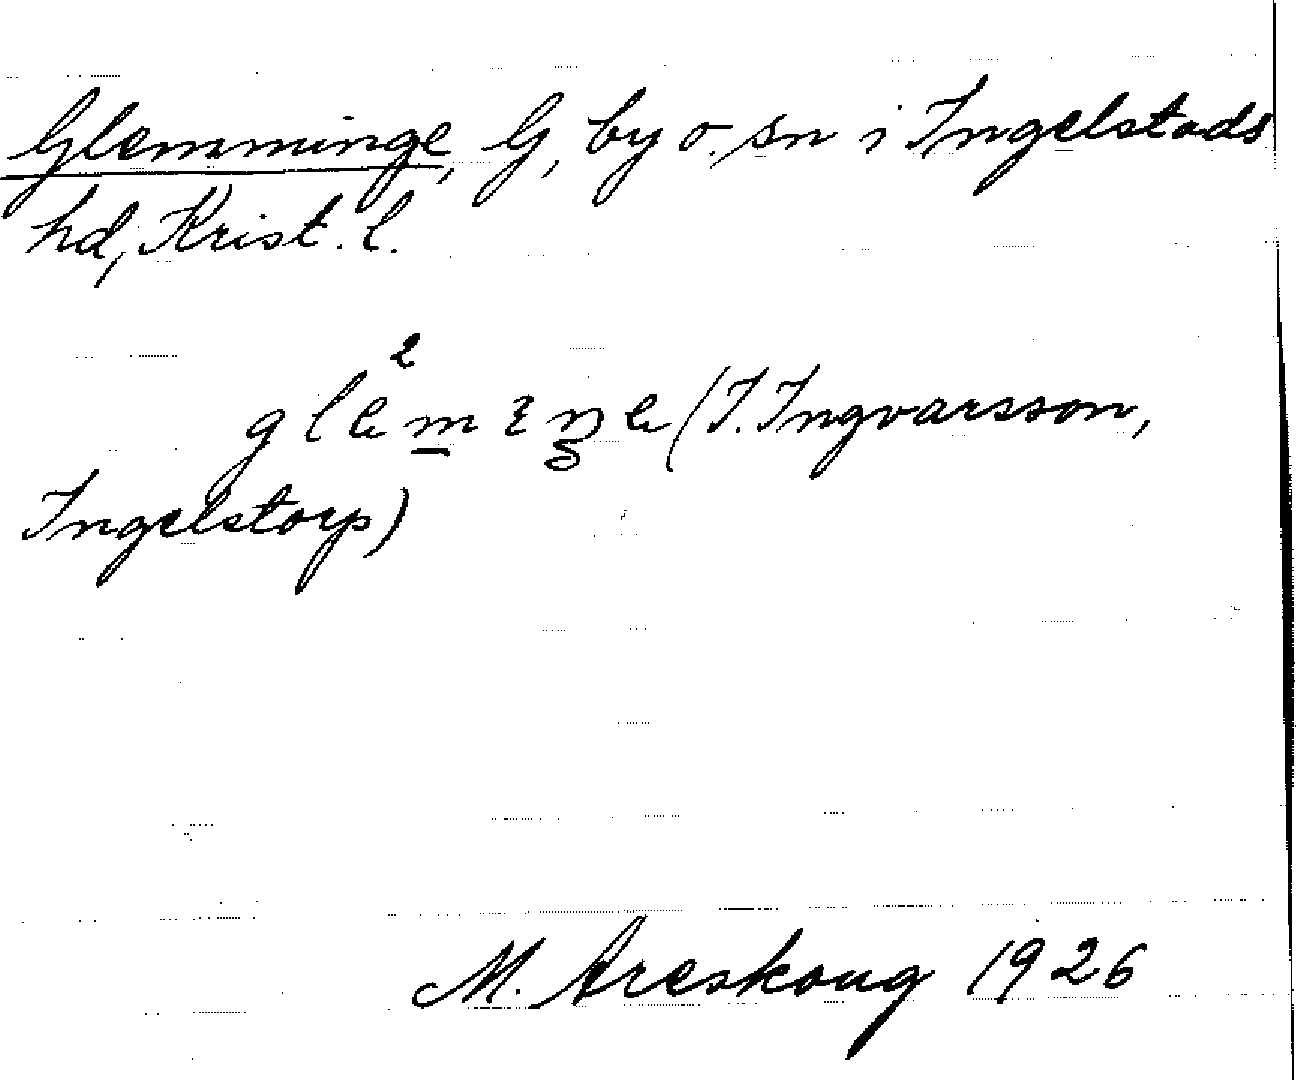 Glemminge, G, by o. sn i Ingelstads
hd, Krist. l.
2
(I. Ingvarsson,
Ingelstorp)
M. Areskoug 1926